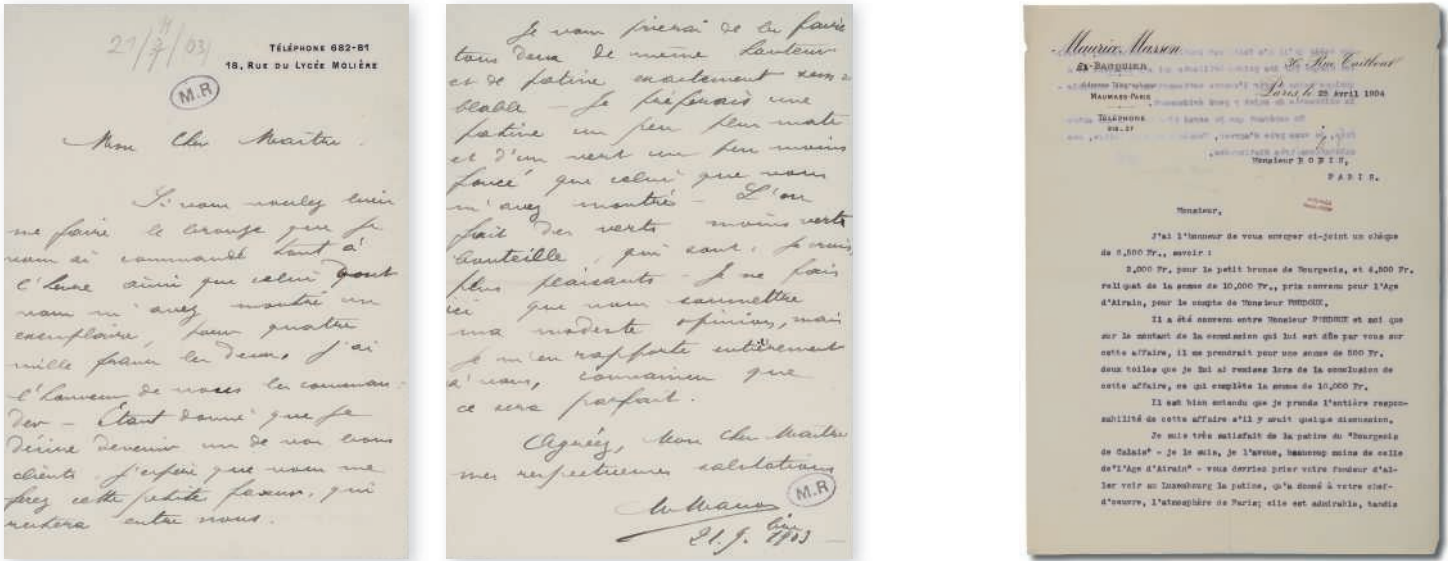 21/9/03
TÉLÉPHONE 682-81
18, RUE DU LYCÉE MOLIÈRE
M.R
Mon Cher Maître.
Si vous voulez bien
me faire le bronze que je
vous ai commandé tout à
l'heure ainsi que celui dont
vous m'avez montré un
exemplaire, pour quatre
mille francs les deux, j'ai
l'honneur de vous les comman-
der – Étant donné que je
désire devenir un de vos bons
clients j'espère que vous me
ferez cette petite faveur, qui
restera entre nous.
Je vous prierai de les faire
tous deux de même hauteur
et de patine exactement sem
blable – Je préférerais une
patine un peu plus mate
et d'un vert un peu moins
foncé que celui que vous
m'avez montré – L'on
fait des verts moins verts
bouteille, qui sont, je crois,
plus plaisants – Je ne fais
ici que vous soumettre
ma modeste opinion, mais
je m'en rapporte entièrement
à vous, convaincu que
ce sera parfait.
Agréez, Mon Cher Maître
mes respectueuses salutations
M.R
21. 9. 1903
Maurice Masson
EX-BANQUIER
36, Rue Taitbout
Adresse Télégraphique
MAUMASS-PARIS
Paris, le 25 Avril 1904
TÉLÉPHONE
Monsieur RODIN,
PARIS.
Monsieur,
J'ai l'honneur de vous envoyer ci-joint un chèque
de 6,500 Fr., savoir :
2,000 Fr. pour le petit bronze de Bourgeois, et 4,500 Fr.
reliquat de la somme de 10.000 Fr., prix convenu pour l'Age
d'Airain, pour le compte de Monsieur PEYDOUX.
Il a été convenu entre Monsieur PEYDOUX et moi que
sur le montant de la commission qui lui est dûe par vous sur
cette affaire, il me prendrait pour une somme de 500 Fr.
deux toiles que je lui ai remises lors de la conclusion de
cette affaire, ce qui complète la somme de 10.000 Fr.
Il est bien entendu que je prends l'entière respon-
sabilité de cette affaire s'il y avait quelque discussion.
Je suis très satisfait de la patine du "Bourgeois
de Calais" - je le suis, je l'avoue, beaucoup moins de celle
de "l'Age d'Airain" - vous devriez prier votre fondeur d'al-
ler voir au Luxembourg la patine, qu'a donné à votre chef-
d'oeuvre, l'atmosphère de Paris; elle est admirable, tandis